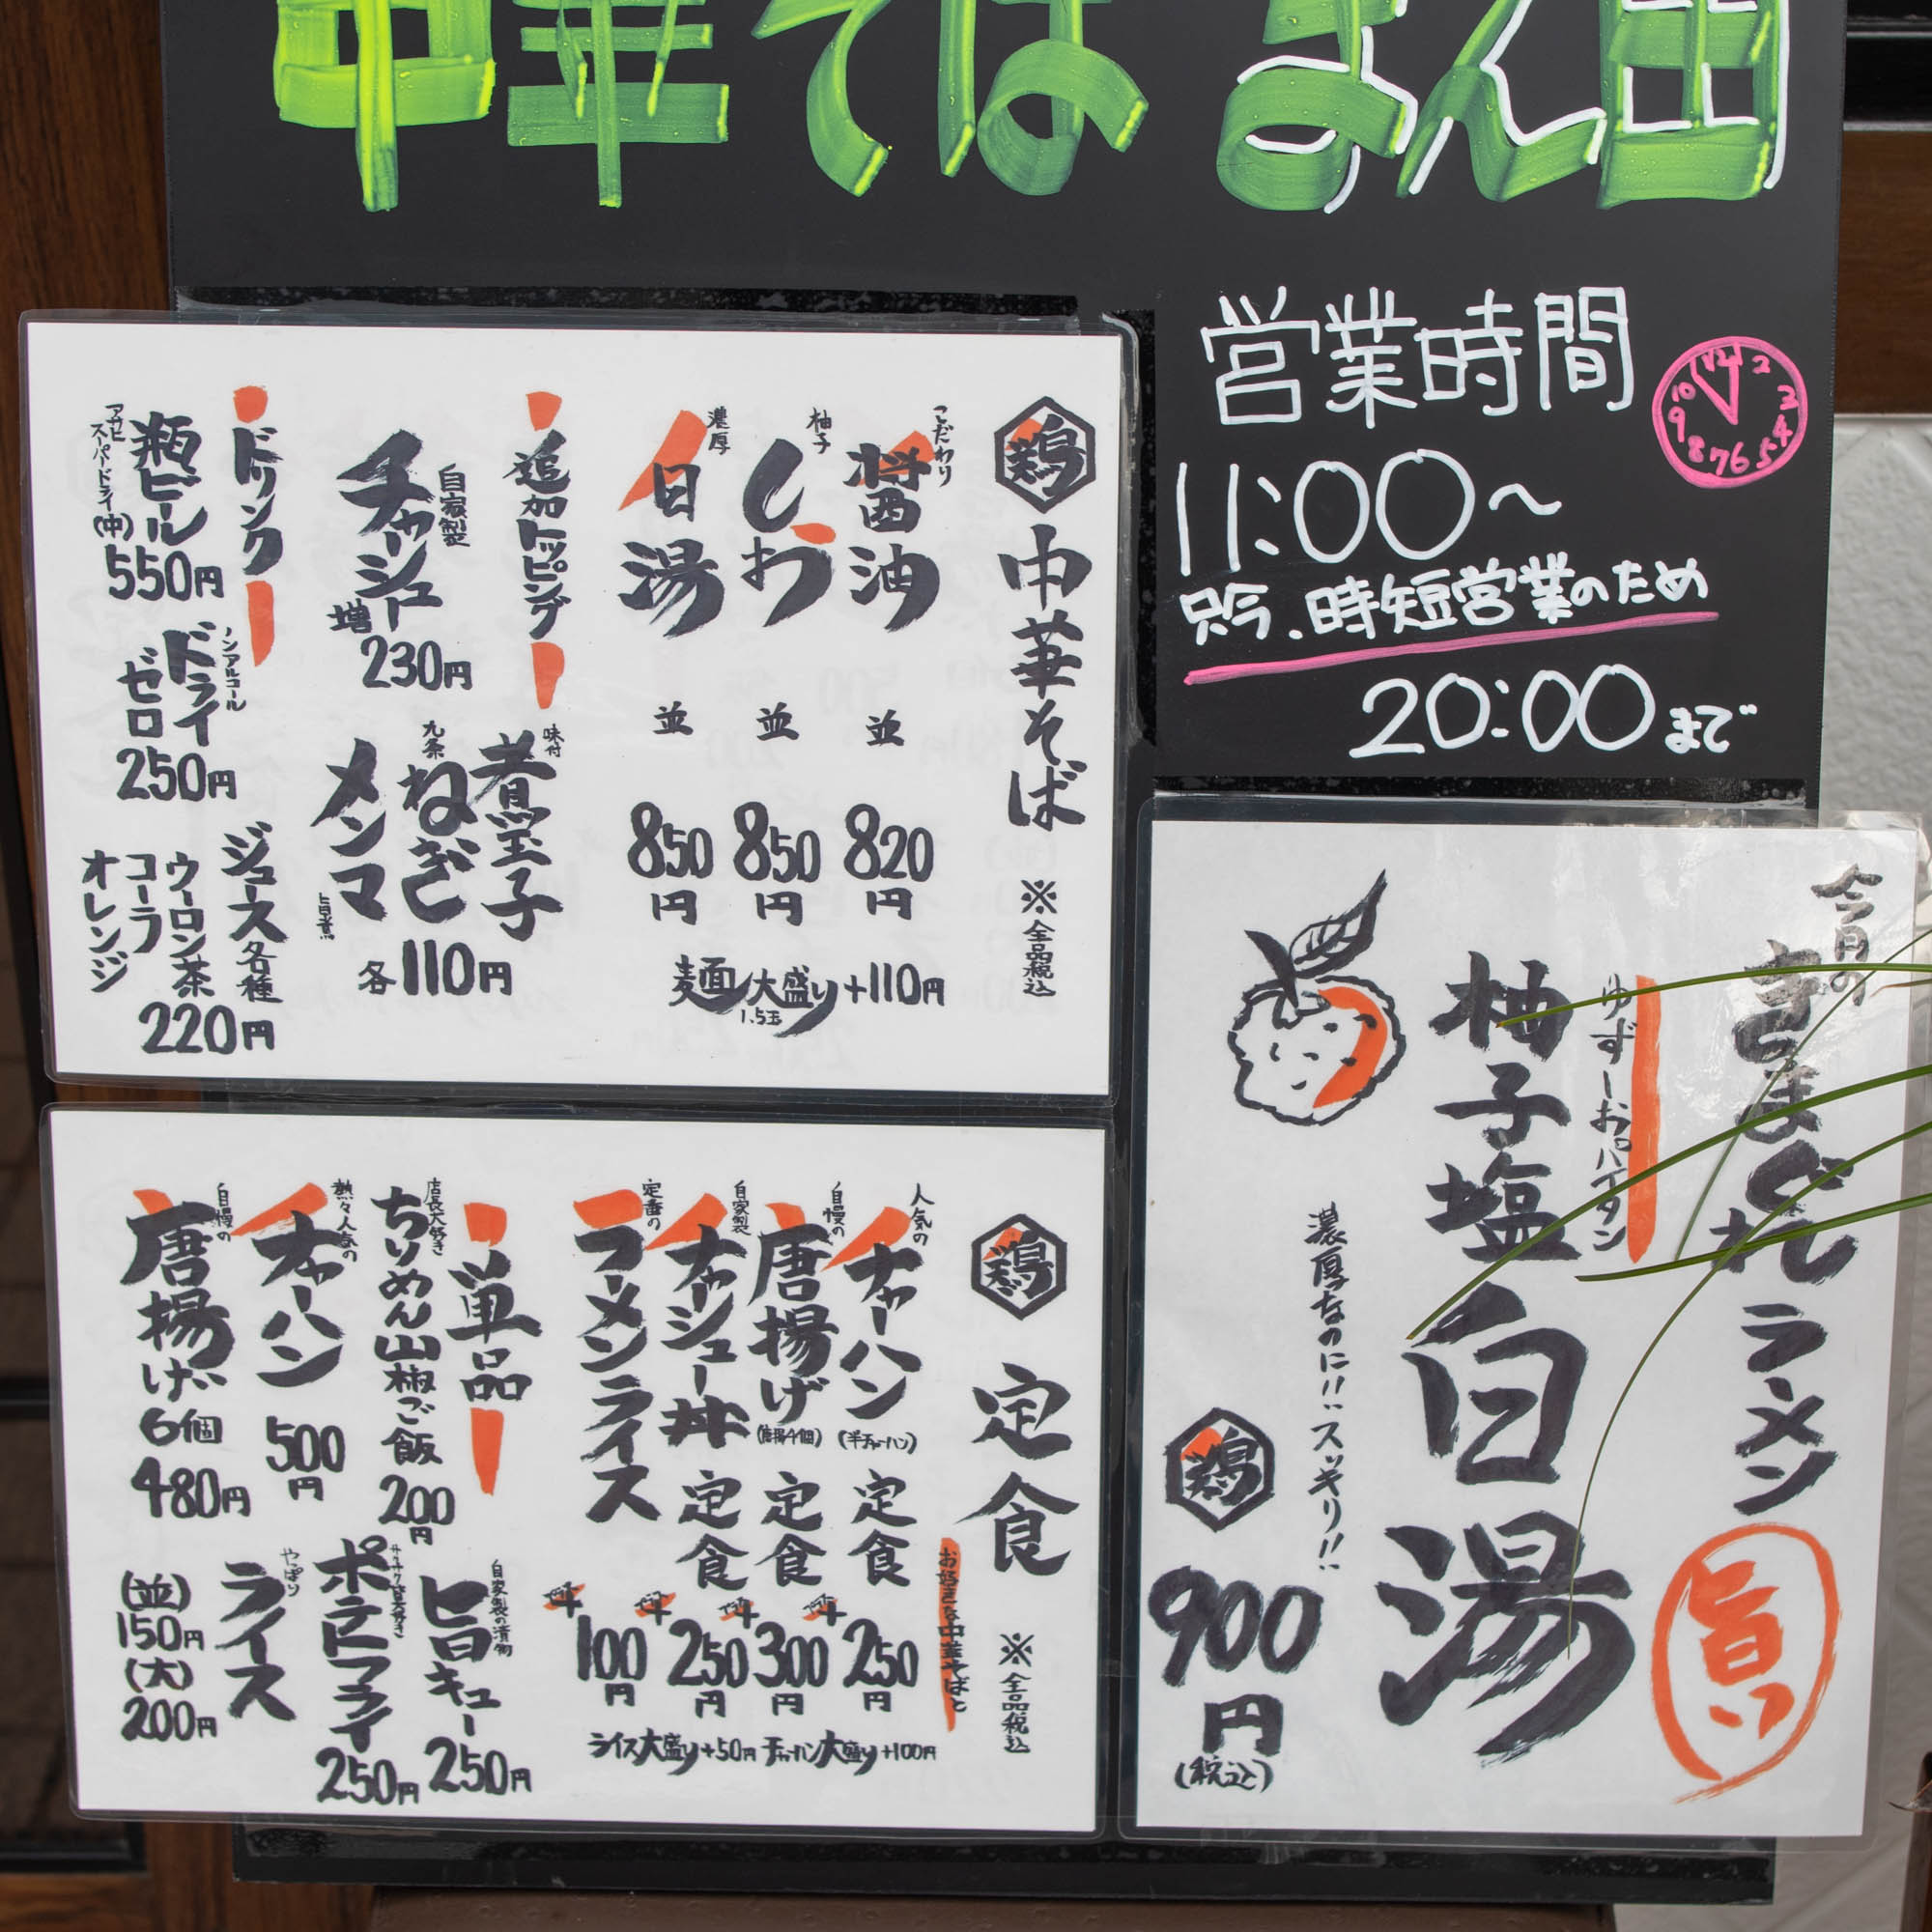 中華そば まん田
営業時間
11:00〜
只今、時短営業のため
20:00まで
鶏 中華そば ※全品税込
こだわり
醤油 並 820円
柚子
しお 並 850円
濃厚
白湯 並 850円
麺大盛り+110円
1.5玉
追加トッピング
自家製
チャーシュー増 230円
味付
煮玉子
九条
ねぎ
メンマ
旨煮
各110円
ドリンク
瓶ビール
アサヒスーパードライ(中)
550円
ノンアルコール
ドライゼロ
250円
ジュース各種
ウーロン茶
コーラ
オレンジ
220円
鶏 定食 ※全品税込
お好きな中華そばと
人気の
チャーハン(半チャーハン)定食 +250円
自慢の
唐揚げ(唐揚4個)定食 +300円
自家製
チャーシュー丼定食 +250円
定番の
ラーメンライス +100円
ライス大盛り+50円 チャーハン大盛り+100円
単品
店長大好き
ちりめん山椒ご飯 200円
熱々人気の
チャーハン 500円
自慢の
唐揚げ 6個 480円
自家製の漬物
旨キュー 250円
ポテトフライ 250円
やっぱり
ライス
(並)150円
(大)200円
今月の
きまぐれラーメン
旨い
ゆずしおパイタン
柚子塩白湯
濃厚なのに!!スッキリ!!
鶏
900円
(税込)